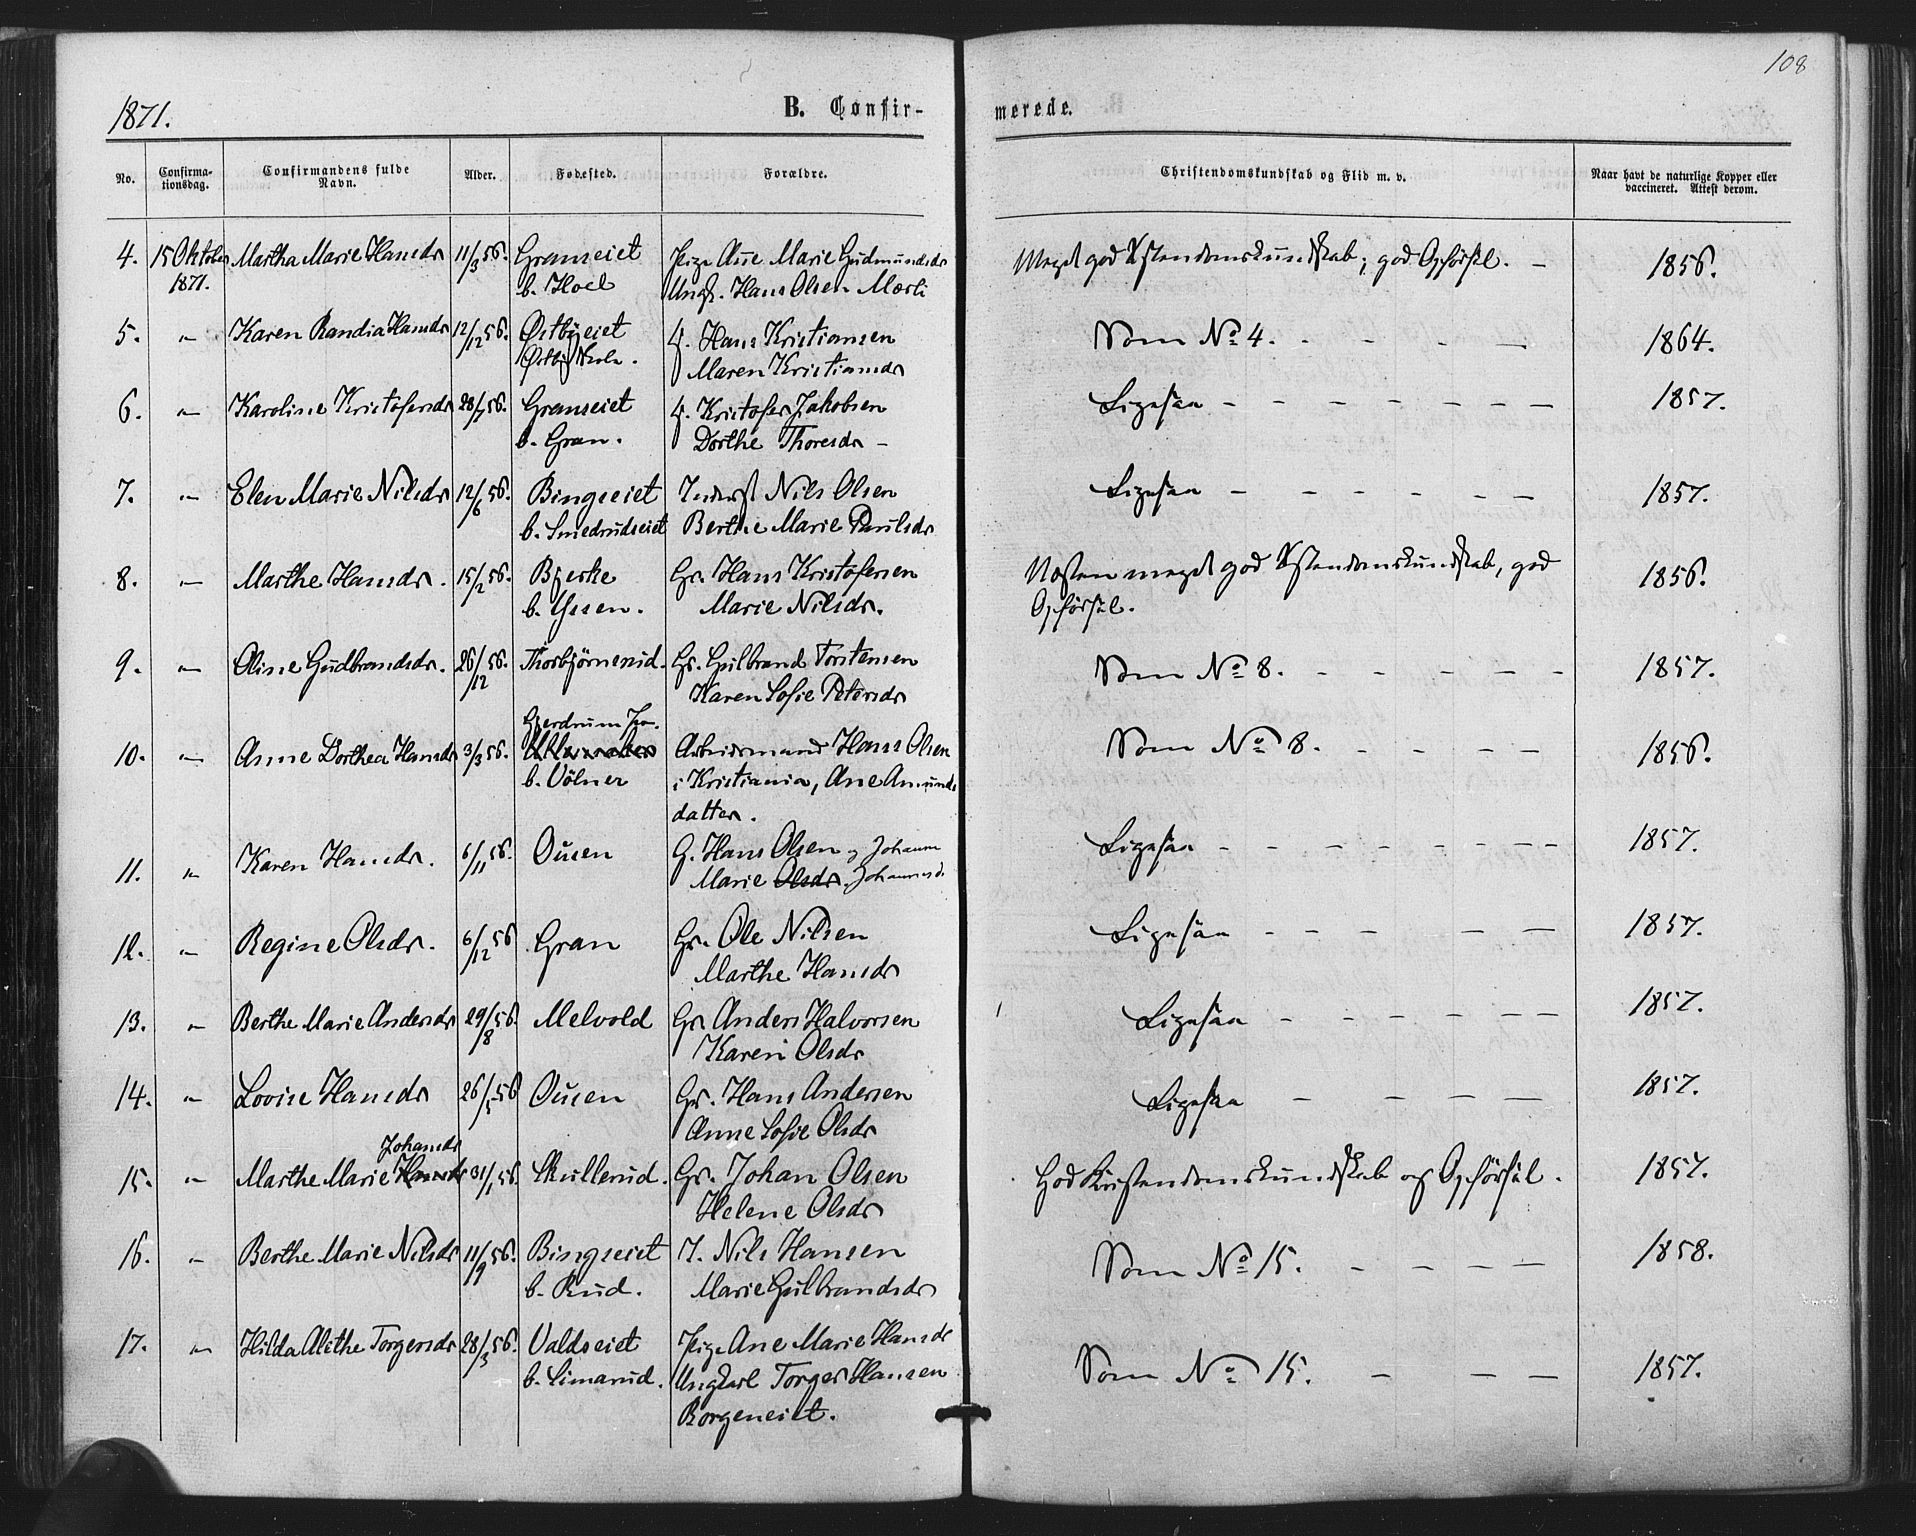 108
1871.
B. Confir-
merede.
No.
Confirma-
tionsdag.
Confirmandens fulde
Navn.
Alder.
Fødested.
Forældre.
Christendomskundskab og Flid m. v.
Naar havt de naturlige Kopper eller
vaccineret. Attest derom.
4. 15 Oktober Martha Marie Hansdr 11/3 56. Granseiet Pige Ane Marie Gudmundsdr Meget god Xstendomskundskab; god Opførsel. — 1856.
1871. b. Hoel Ungk. Hans Olsen Mærli
5. " Karen Randia Hansdr 12/12 56. Østbyeiet G. Hans Kristiansen Som No 4. - - - — 1864.
Østby Maren Kristiansdr
6. " Karoline Kristofersdr 28/7 56. Granseiet G. Kristofer Jakobsen Ligesaa - - - - - - - — 1857.
b. Gran. Dorthe Thoresdr -
7. " Elen Marie Nilsdr 12/6 56. Bingseiet Inderst Nils Olsen Ligesaa - - - - - — 1857.
b. Smedrudseiet Berthe Marie Paulsdr
8. " Marthe Hansdr. 15/2 56. Bjerke Gr. Hans Kristofersen Næsten meget god Xstendomskundskab, god 1856.
b. Yssen. Marie Nilsdr. Opførsel.
9. " Oline Gudbrandsdr. 26/12 56. Thorbjørnsrud. Gr. Gulbrand Torstensen Som No 8. - - - - — 1857.
Karen Sofie Petersdr
Gjerdrum
10. " Anne Dorthea Hansdr 3/3 56. Arbeidsmand Hans Olsen Som No 8. - - - — 1856.
b. Völner i Kristiania, Ane Amunds
datter.
11. " Karen Hansdr. 6/11 56. Ousen G. Hans Olsen og Johanne Ligesaa - - - - - - - — 1857.
Marie Olsdr. Johannesd.
12. " Regine Olsdr. 6/12 56 Gran Gr. Ole Nilsen Ligesaa - - - - - — 1857.
Marthe Hansdr
13. " Berthe Marie Andersdr 29/8 56. Melvold Gr Anders Halvorsen Ligesaa - - - - - - — 1857.
Karen Olsdr
14. " Lovise Hansdr 26/5 56 Ousen Gr. Hans Andersen Ligesaa - - - - — 1857.
Anne Sofie Olsdr
Johansdr
15. " Marthe Marie Hansdr 31/1 56. Skullerud. Gr. Johan Olsen God Kristendomskundskab og Opførsel. 1857.
Helene Olsdr
16. " Berthe Marie Nilsdr 11/9 56. Bingseiet I. Nils Hansen Som No 15. - - - — 1858.
b. Rud. Marie Gulbrandsdr
17. " Hilda Alethe Torgersdr 28/3 56. Valdseiet Pige Ane Marie Hansdr Som No 15. - - — 1857.
b. Simarud. Ungkarl Torger Hansen
Borgeneiet.